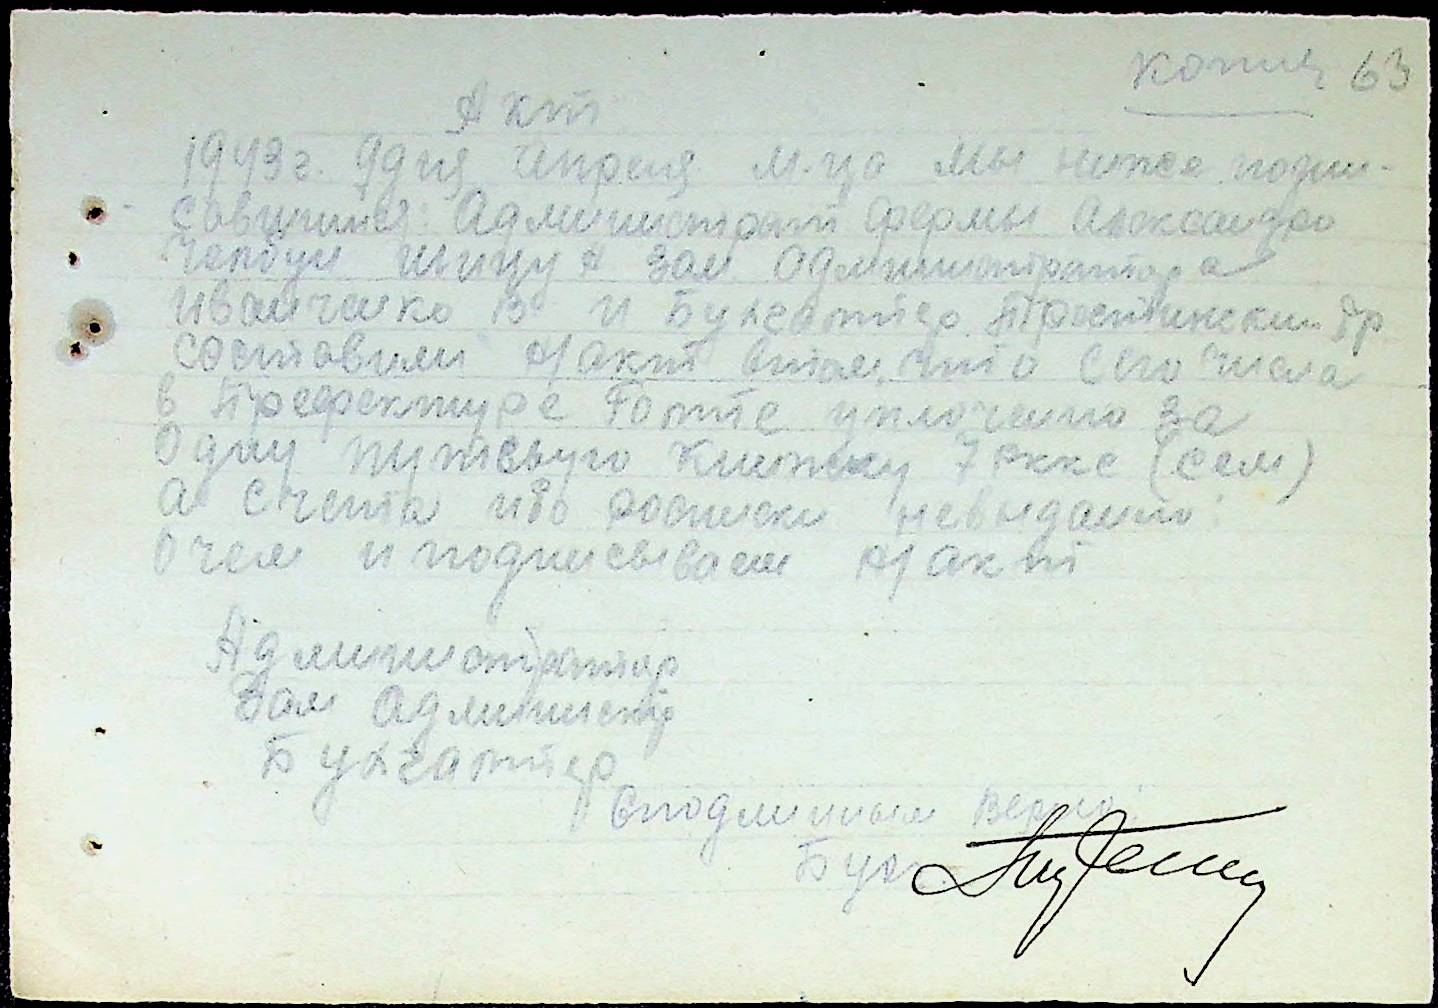 Копия 63
Акт
1943 г. 9 дня Апреля м-ца мы ниже подпи-
савшиися: Администрат фермы Александро
зам Администратора
Иванченко В и Бухгалтер др.
составили А/акт втом, что сего числа
в Префектуре Голте уплочено за
Одну путевую Книжку 7 ркке (сем)
а счета ибо росписки невыдано:
О чем и подписываем А/акт
Администратор
Зам Администр
Бухгалтер
Сподлинным Верно:
Бух.